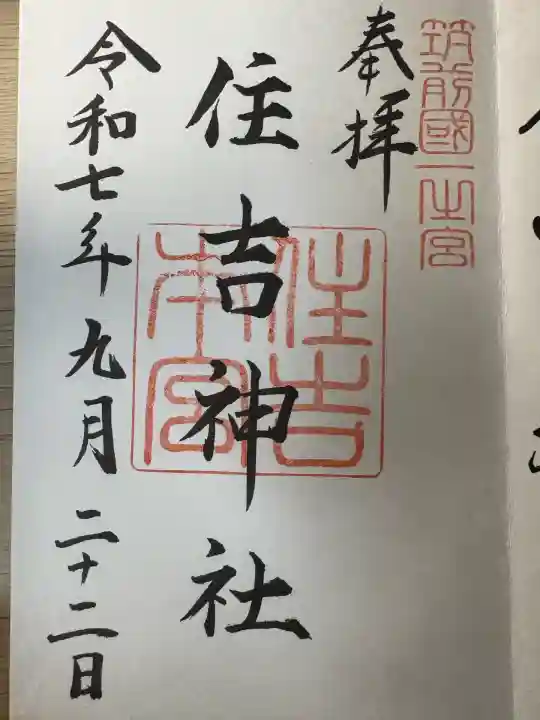 筑前國一之宮
奉拝
住吉神社
住吉
本宮
令和七年九月二十二日